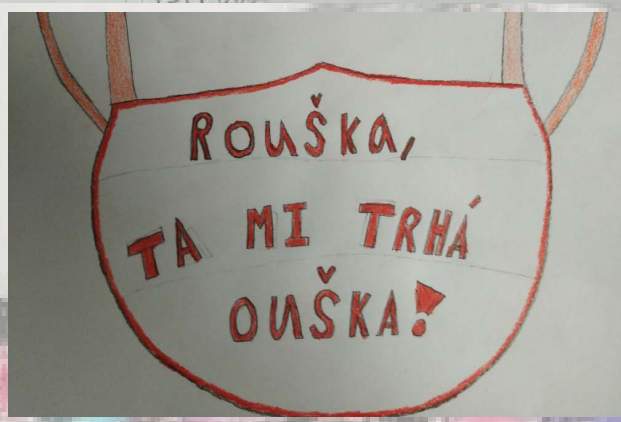 ROUŠKA,
TA MI TRHÁ
OUŠKA!